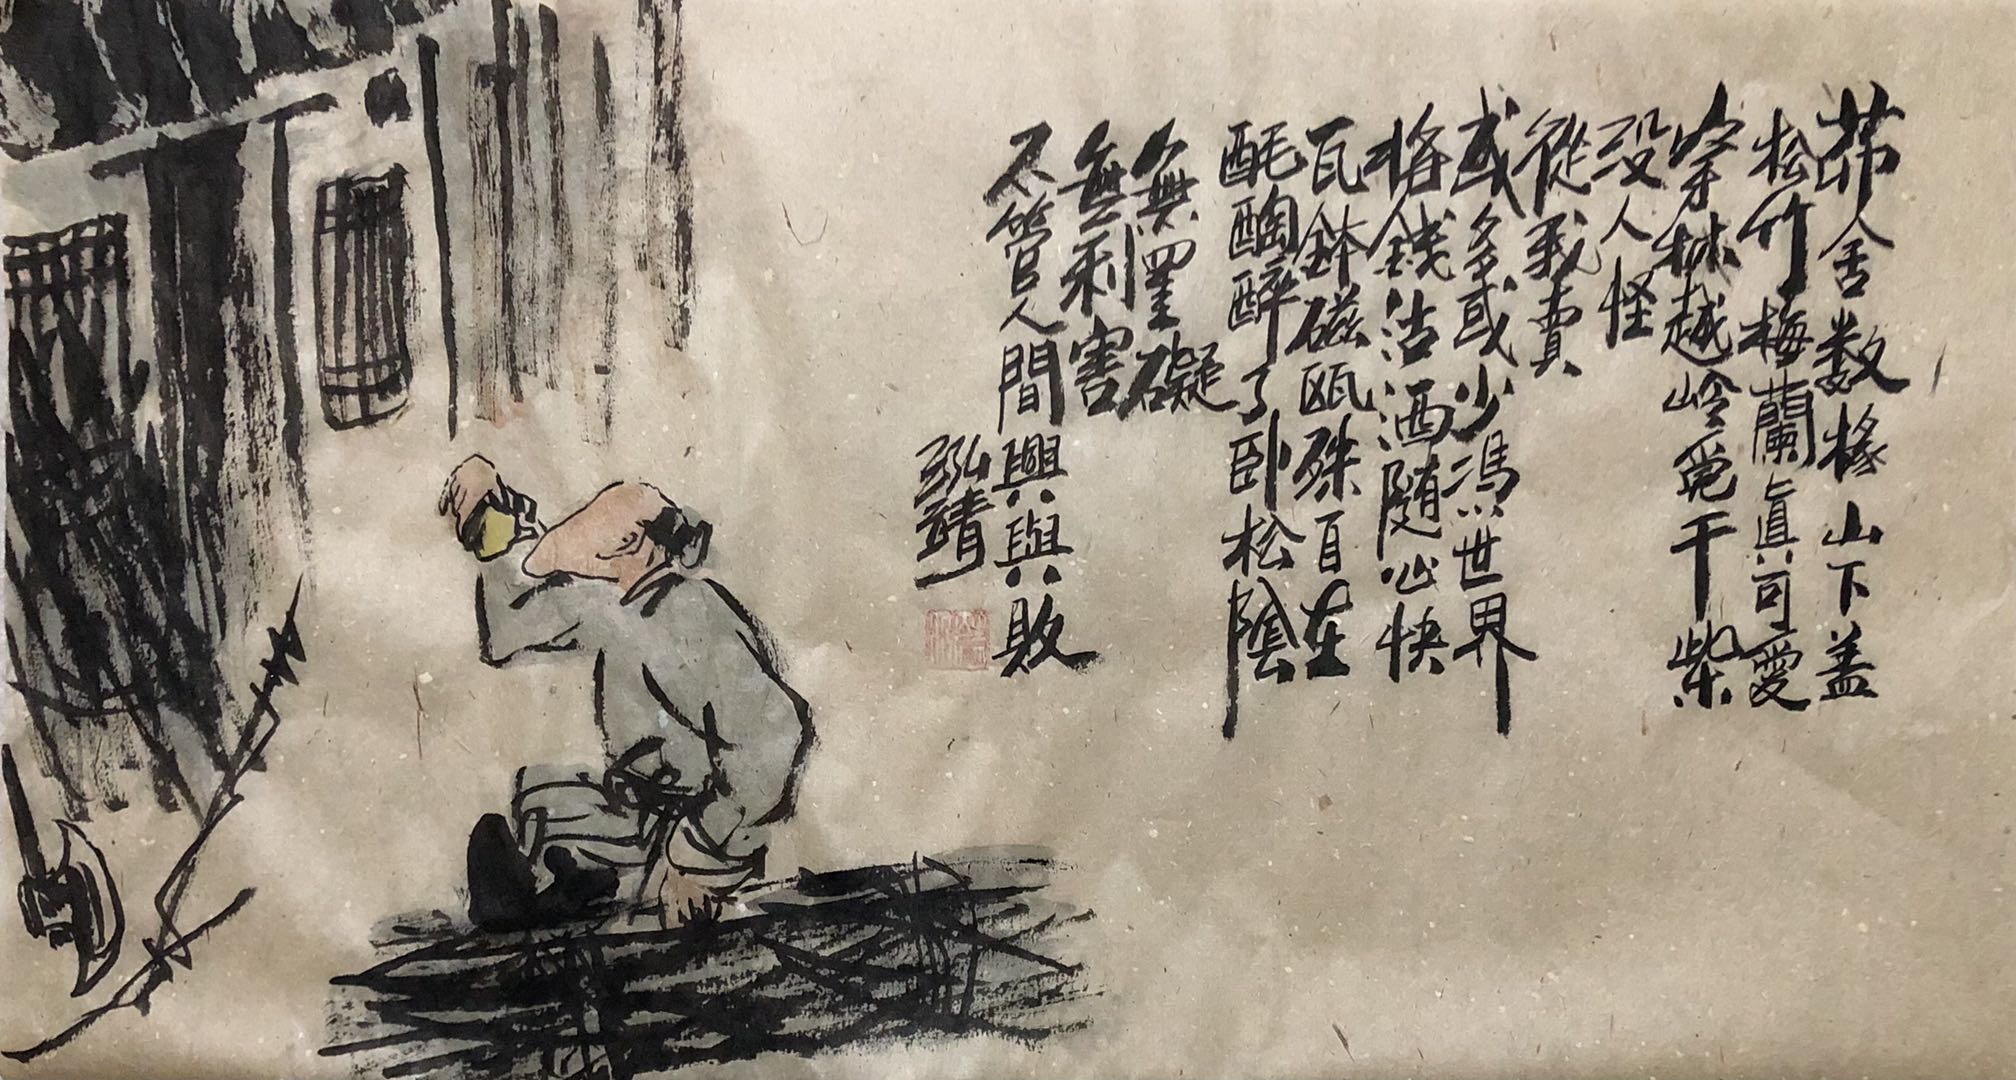 茆舍数椽山下盖
松竹梅蘭眞可愛
穿林越岭覓干柴
没人怪
從我賣
或多或少馮世界
将錢沽酒随心快
瓦鉢磁瓯殊自在
酕醄醉了卧松陰
無罣礙
無利害
不管人間興與敗
弘靖